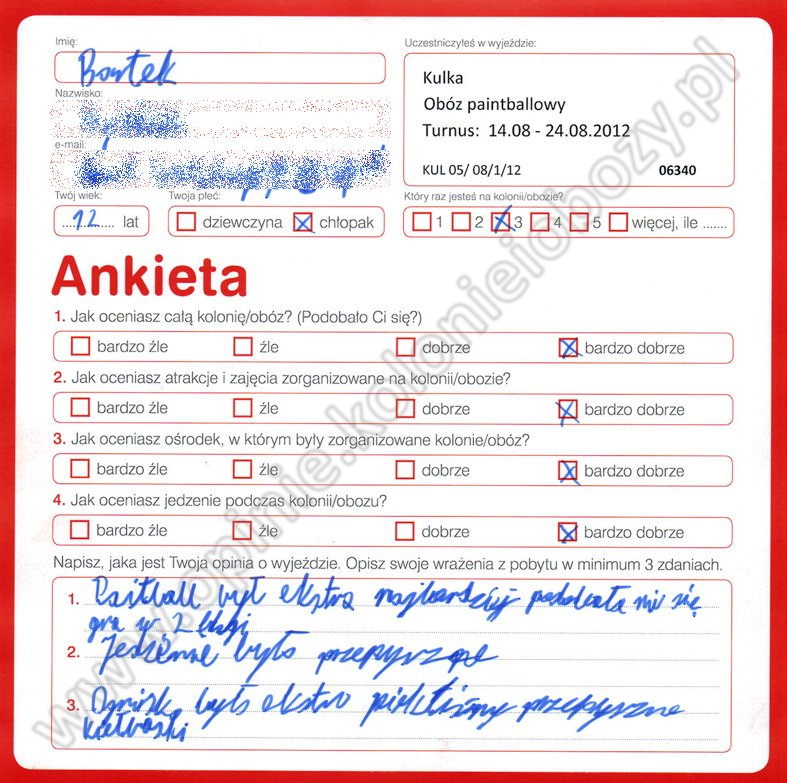 Imię:
Bartek
Uczestniczyłeś w wyjeździe:
Kulka
Obóz paintballowy
Turnus: 14.08 - 24.08.2012
KUL 05/ 08/1/12 06340
Nazwisko:
e-mail:
Twój wiek: Twoja płeć: Który raz jesteś na kolonii/obozie?
12 lat dziewczyna chłopak 1 2 3 4 5 więcej, ile .......
Ankieta
1. Jak oceniasz całą kolonię/obóz? (Podobało Ci się?)
bardzo źle źle dobrze bardzo dobrze
2. Jak oceniasz atrakcje i zajęcia zorganizowane na kolonii/obozie?
bardzo źle źle dobrze bardzo dobrze
3. Jak oceniasz ośrodek, w którym były zorganizowane kolonie/obóz?
bardzo źle źle dobrze bardzo dobrze
4. Jak oceniasz jedzenie podczas kolonii/obozu?
bardzo źle źle dobrze bardzo dobrze
Napisz, jaka jest Twoja opinia o wyjeździe. Opisz swoje wrażenia z pobytu w minimum 3 zdaniach.
1. był ekstra najbardziej podobała mi się
gra w 2
2. było
3. było ekstra przepyszne
kiełbaski
www.opinie.kolonieiobozy.pl